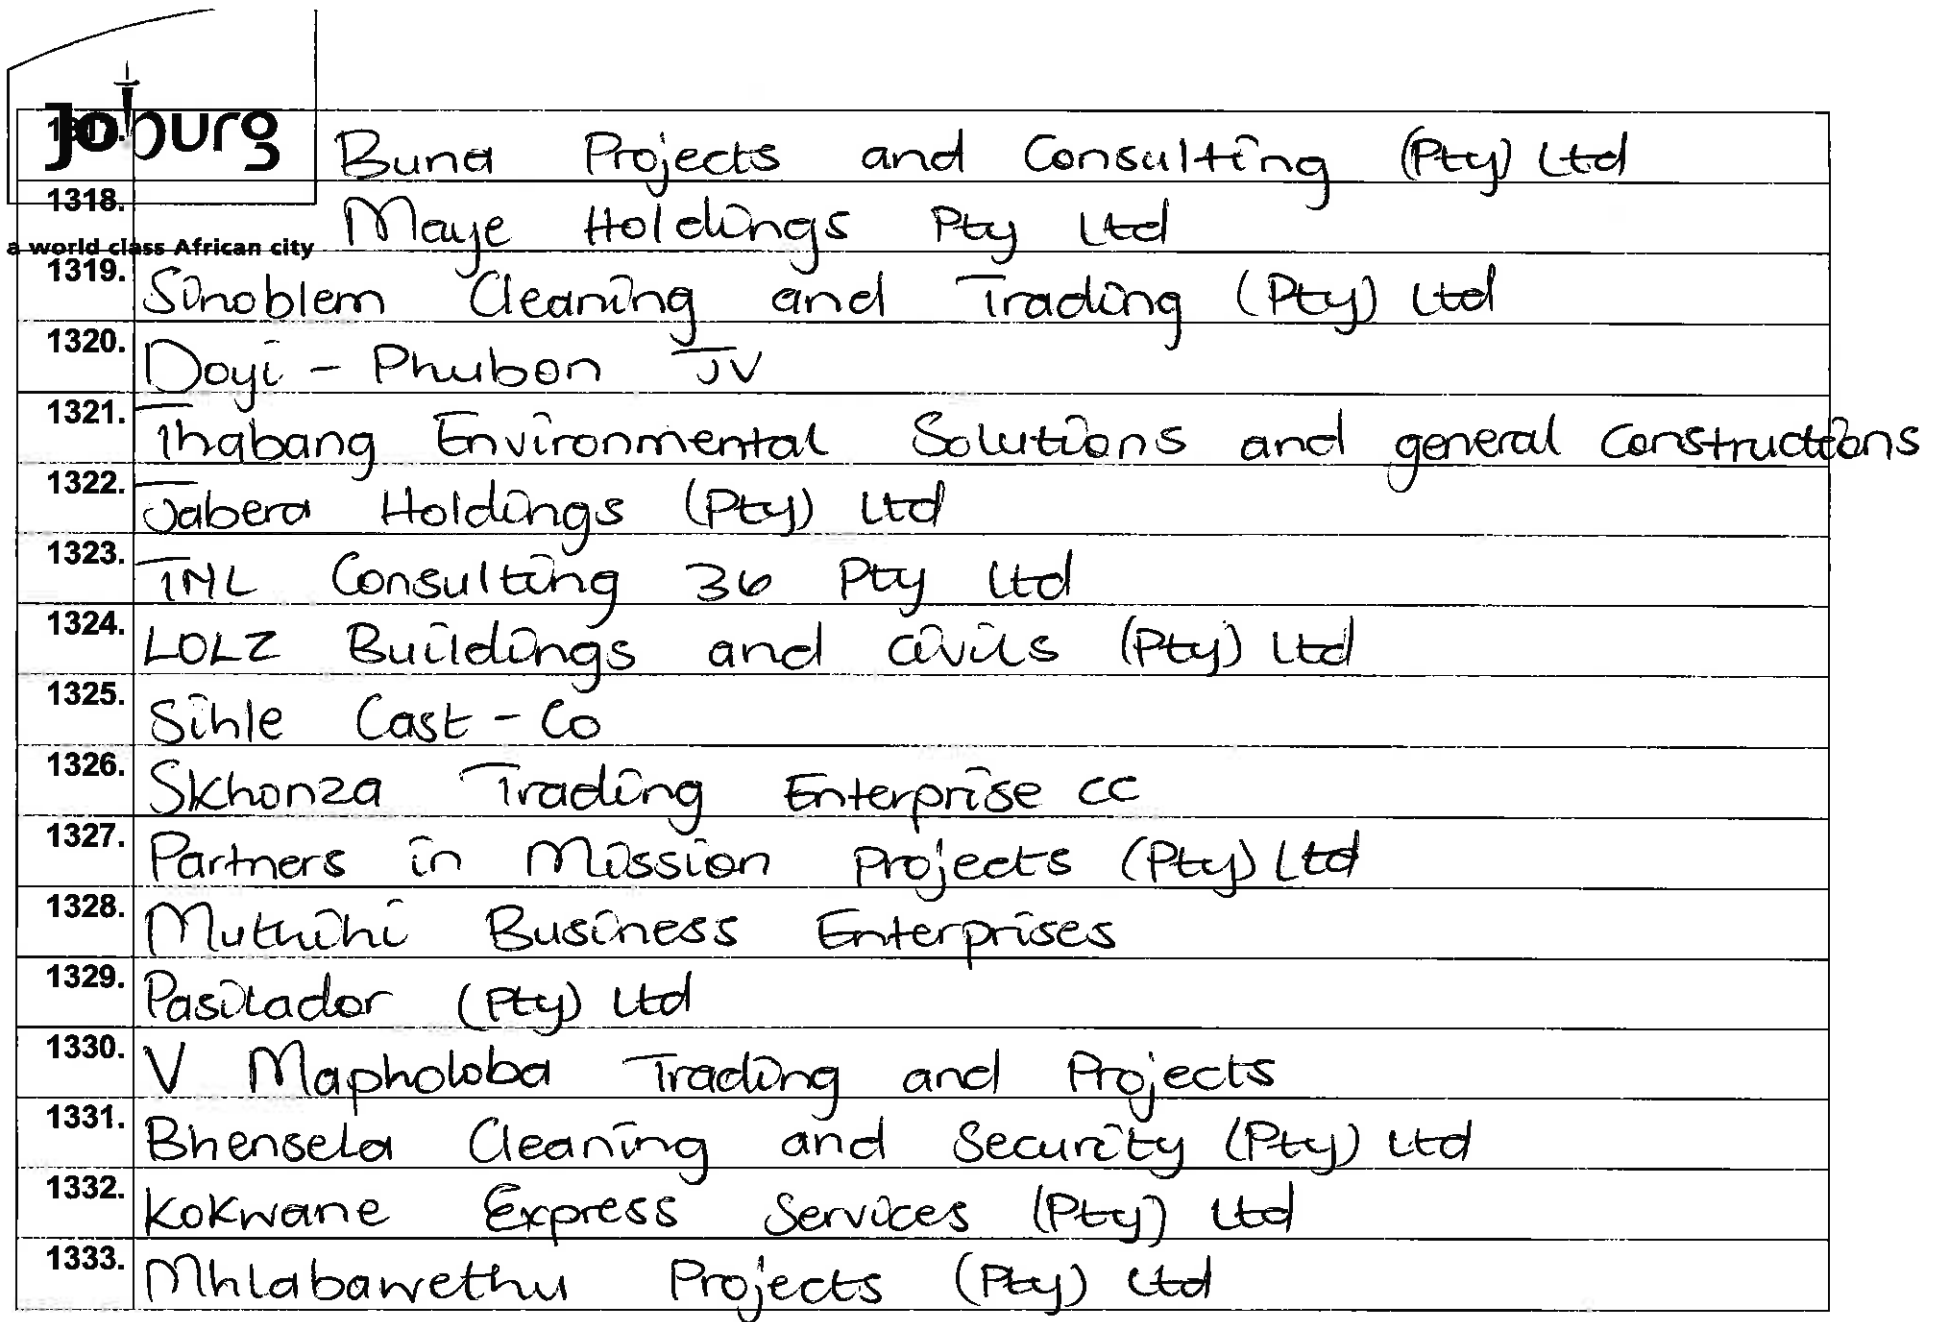 Joburg
a world class African city
1317. Buna Projects and Consulting (Pty) Ltd
1318. Maye Holdings Pty Ltd
1319. Sinoblem Cleaning and Trading (Pty) Ltd
1320. Doyi - Phubon JV
1321. Thabang Environmental Solutions and general constructions
1322. Jabera Holdings (Pty) Ltd
1323. TML Consulting 36 Pty Ltd
1324. LOLZ Buildings and civils (Pty) Ltd
1325. Sihle Cast - Co
1326. Skhonza Trading Enterprise cc
1327. Partners in Mission Projects (Pty) Ltd
1328. Muthihi Business Enterprises
1329. Pasilador (Pty) Ltd
1330. V Mapholoba Trading and Projects
1331. Bhensela Cleaning and Security (Pty) Ltd
1332. Kokwane Express Services (Pty) Ltd
1333. Mhlabawethu Projects (Pty) Ltd